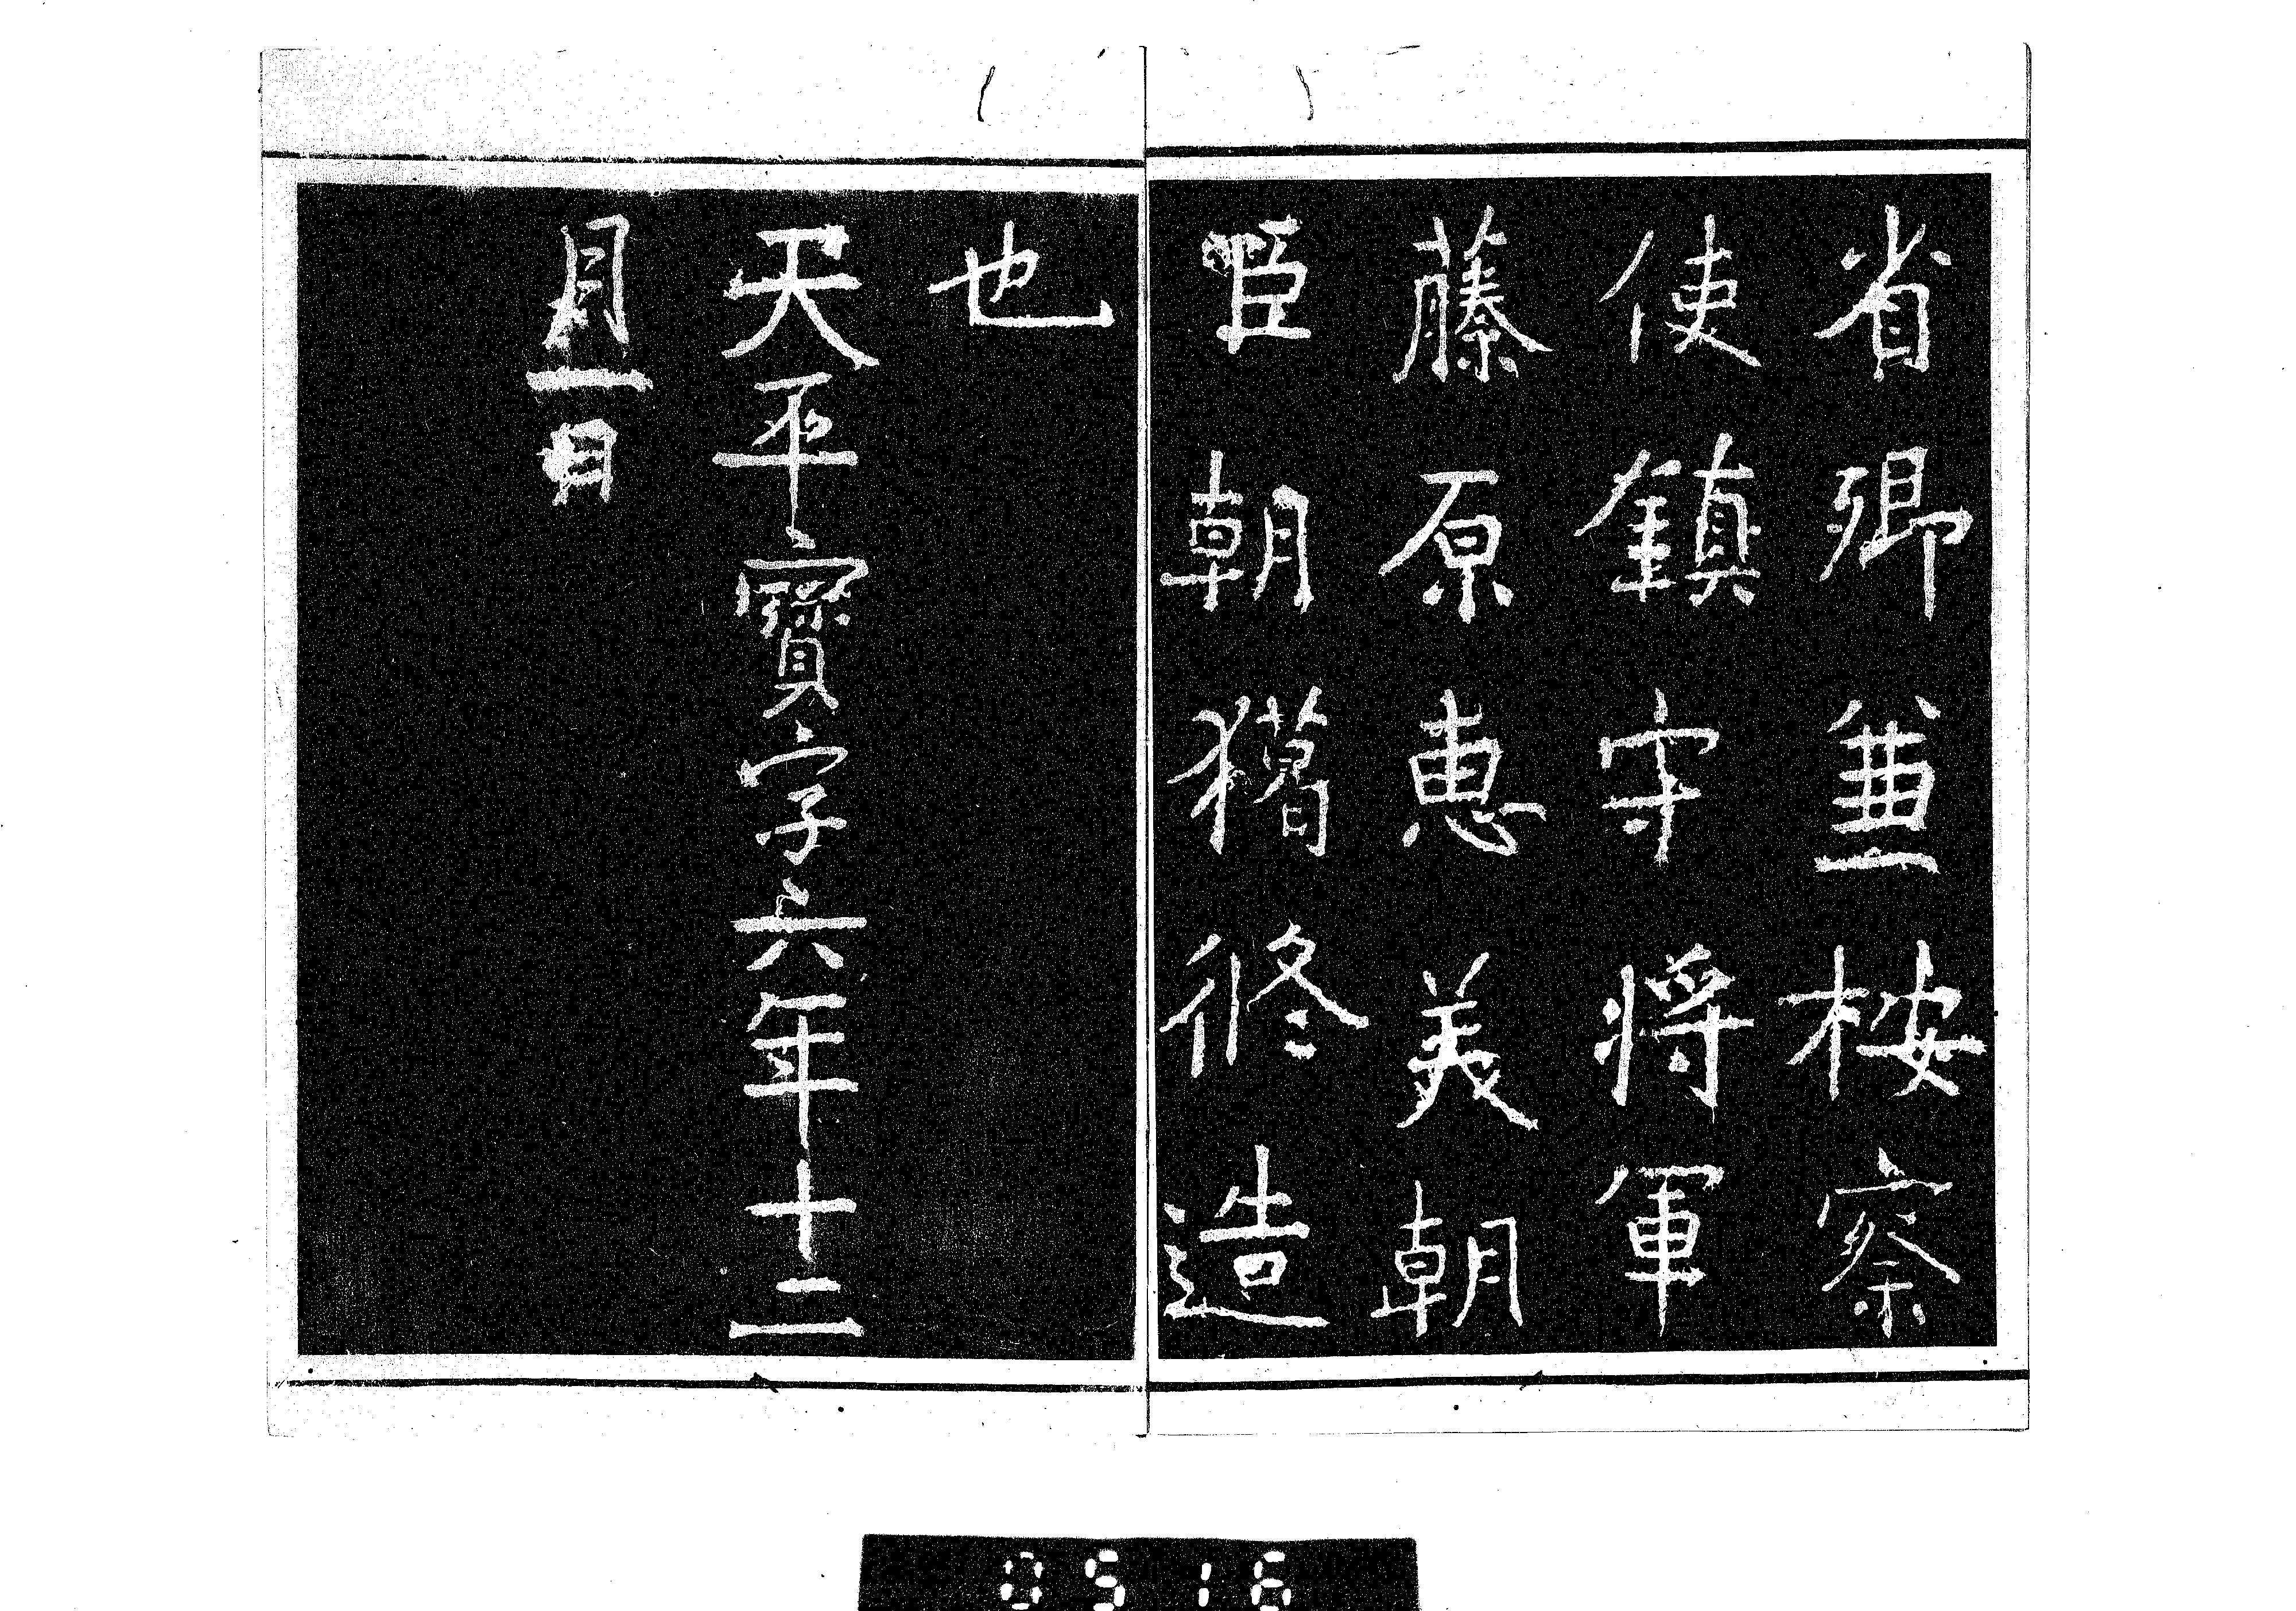 省卿兼按察
使鎮守将軍
藤原恵美朝
臣朝獦修造
也
天平寶字六年十二
月一日
0516